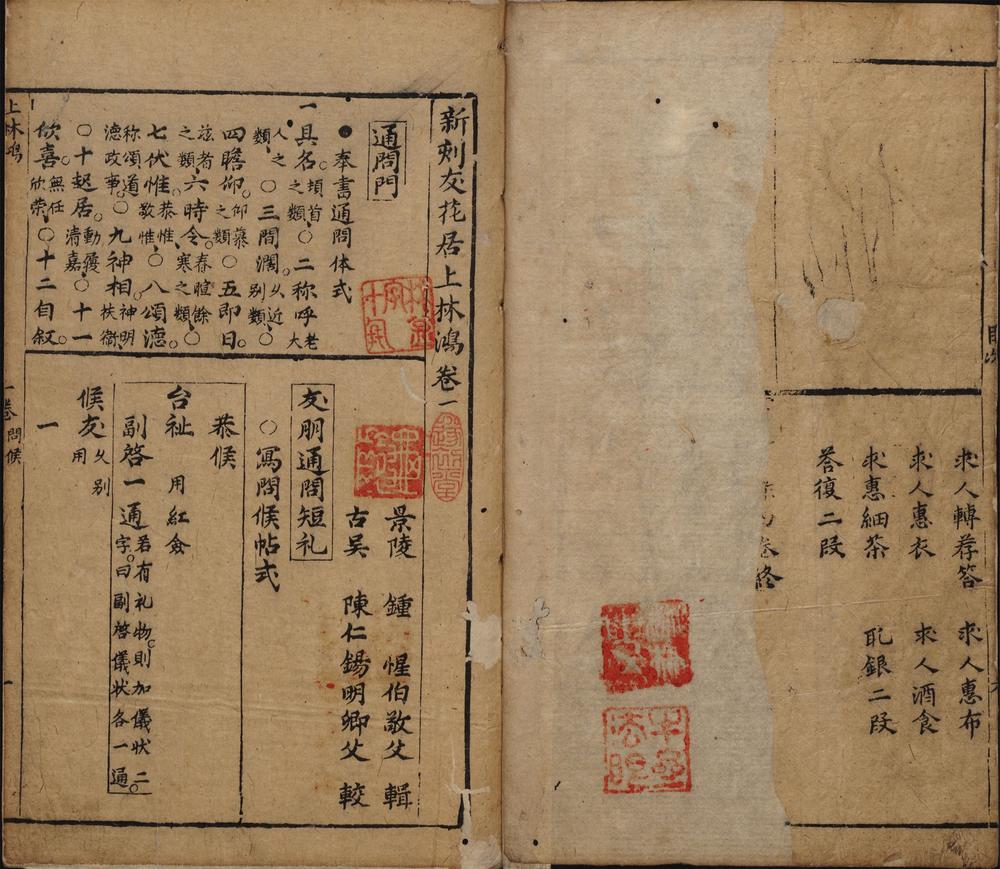 求人轉荐答 求人惠布
求人惠衣 求人酒食
求惠細茶 貺銀二叚
荅復二叚
卷終
目次
新刻友花居上林鴻卷一
通問門
●奉書通問体式
一具名頓首○二称呼老
人之類之類○三間濶乆近别類○
四瞻仰仰慕之類○五即日
兹者之類六時令春暄餘寒之類○
七伏惟恭惟敬惟○八頌德
称頌道德政事○九神相神明扶衛
○十起居動履清嘉○十一
欣喜無任欣荣○十二自叙
景陵 鍾 惺伯敬父 輯
古吴 陳仁錫明卿父 較
友朋通問短礼
○寫問候帖式
恭候
台祉 用紅僉
副啓一通若有礼物則加儀状二字曰副啓儀状各一通
候友乆别用
一
上林鴻
一卷 問候
一